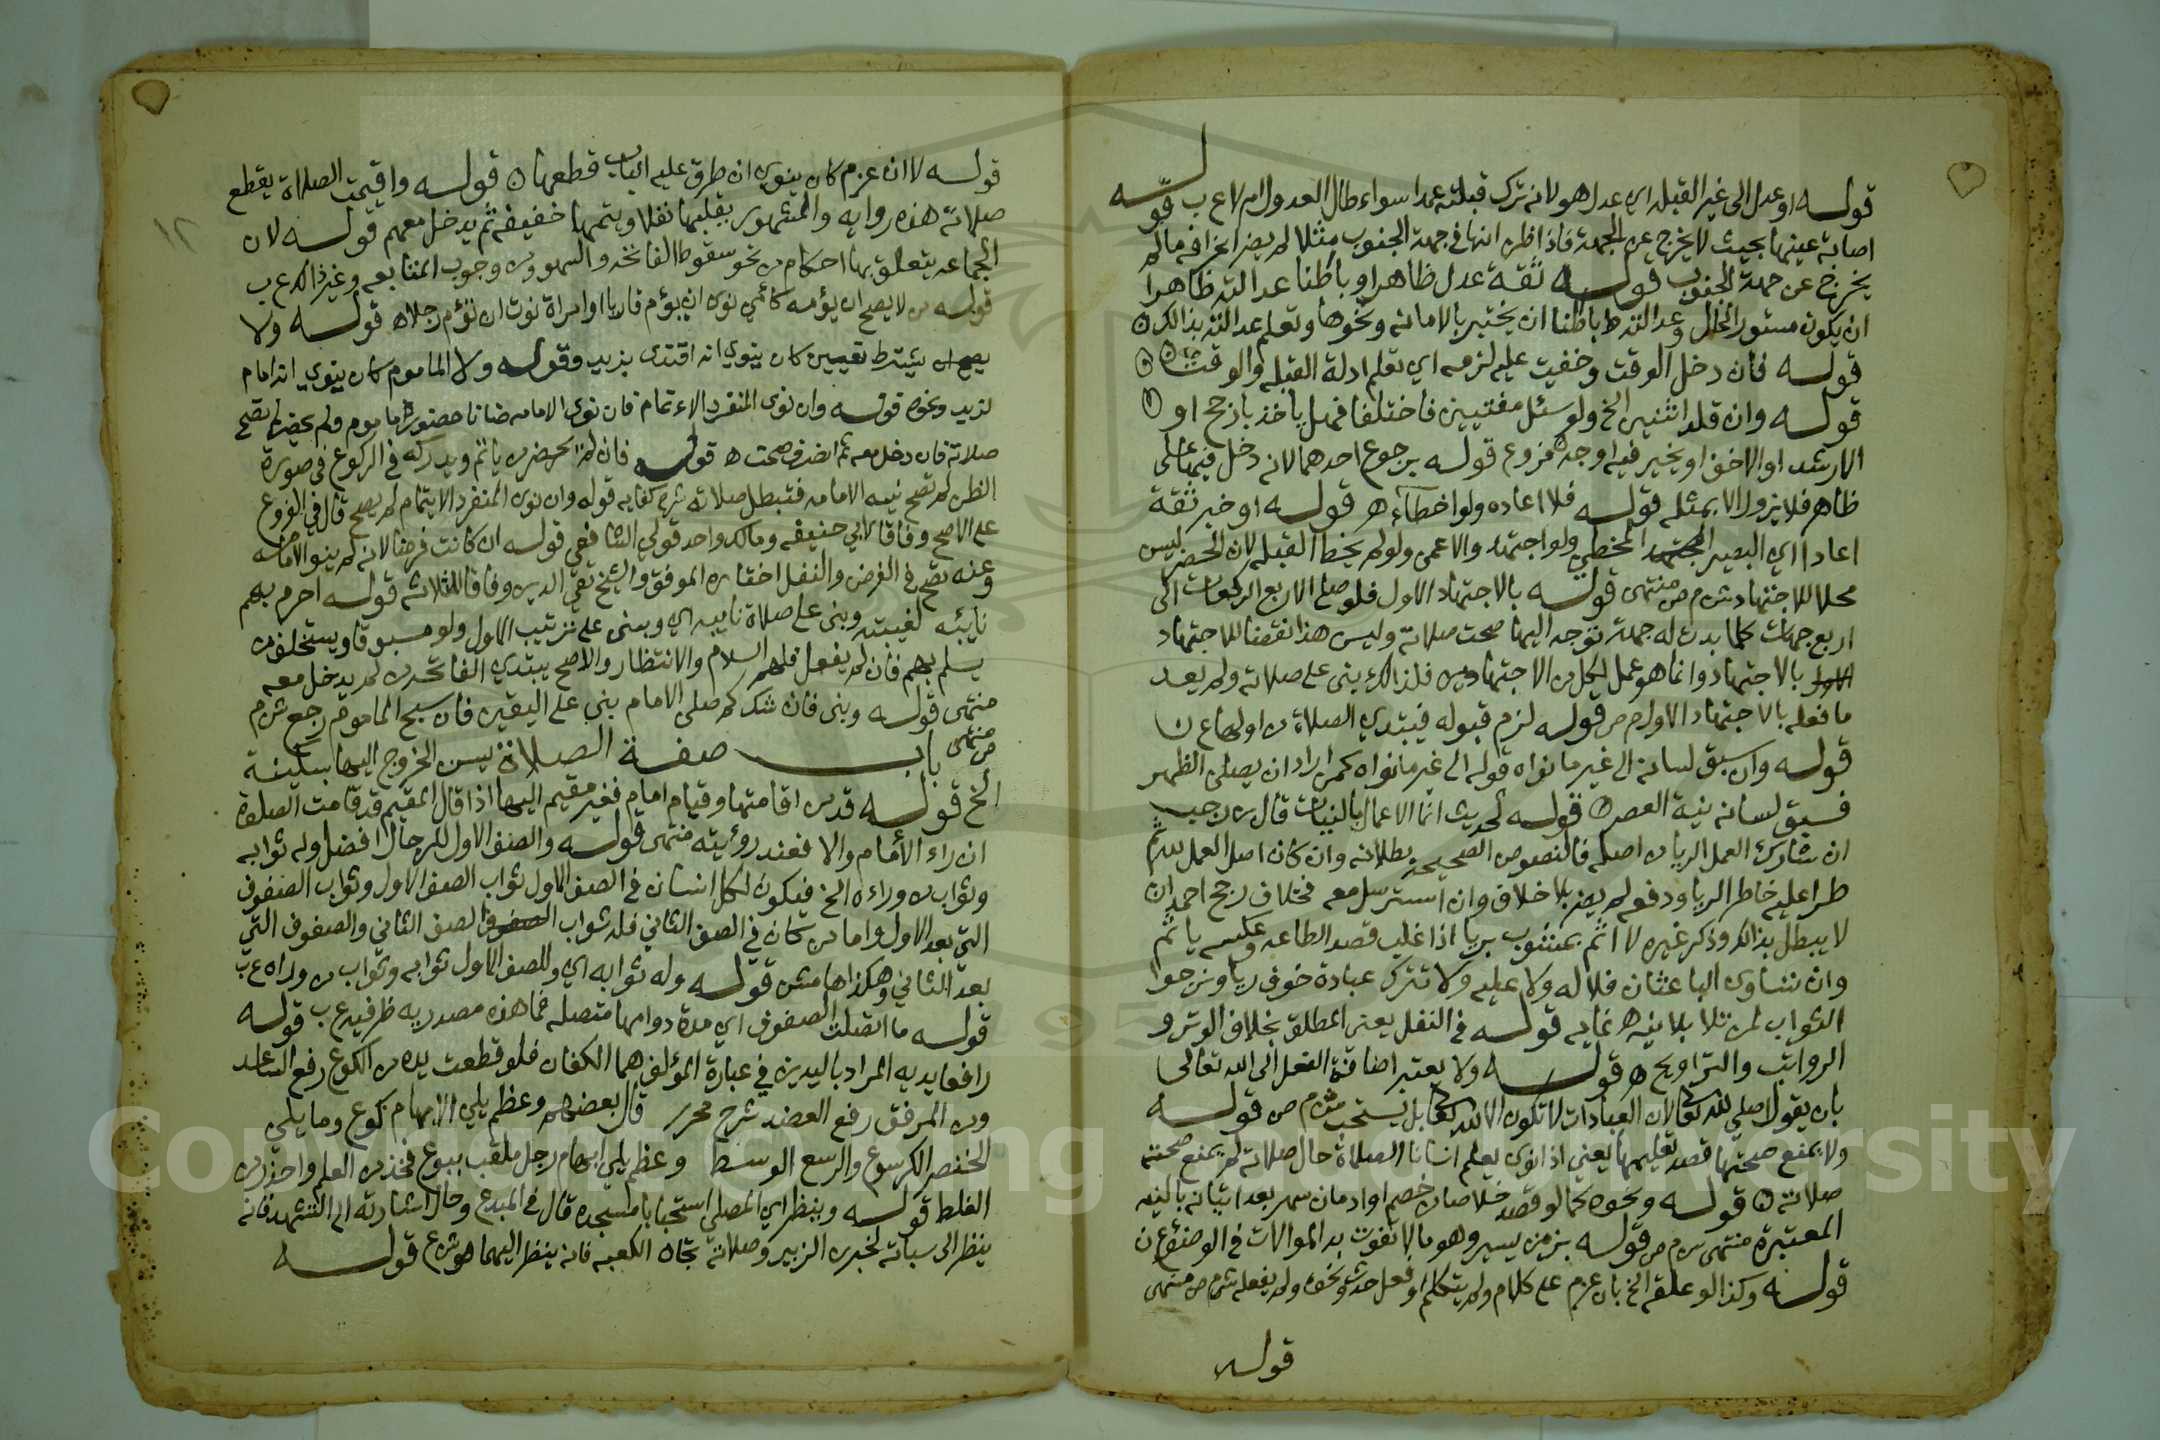 قوله او عدل الى غير القبله اي عدل هو لانه ترك قبلته عمدا سواء طال العدول ام لا ع ب قوله
اصابة عينها بحيث لا يخرج عن الجهة فاذا ظن انها في جهة الجنوب مثلا لم يضر انحرافه ما لم
يخرج عن جهة الجنوب قوله ثقة عدل ظاهرا وباطنا عدالته ظاهرا
ان يكون مستور الحال وعدالته باطنا ان يختبر بالامانه ونحوها وتعلم عدالته بذالك
قوله فان دخل الوقت وخفيت عليه لزمه اي تعلم ادلة القبله والوقت
قوله وان قلد اثنين الخ ولو سئل مفتيين فاختلفا فهل ياخذ بارجح او
الارشد او الاخف او يخير فيه اوجه فروع قوله برجوع احدهما لانه دخل فيها على
ظاهر فلا يزول الا بمثله قوله فلا اعاده ولو اخطأ ه قوله او خبر ثقة
اعادا اي البصير المخطي ولو اجتهد والاعمى ولو لم يخط القبله لان الحضر ليس
محلا للاجتهاد ش م ص منتهى قوله بالاجتهاد الاول فلو صلى الاربع الركعات الى
اربع جهات كلما بدت له جهة توجه اليها صحت صلاته وليس هذا نقضا للاجتهاد
بالاجتهاد وانما هو عمل بكل من الاجتهادين فلذالك بنى على صلاته ولم يعد
ما فعله بالاجتهاد الاول م ص قوله لزم قبوله فيبتدي الصلاة من اولها ع ن
قوله وان سبق لسانه الى غير ما نواه قوله الى غير ما نواه كمن اراد ان يصلي الظهر
فسبق لسانه بنية العصر قوله لحديث انما الاعمال بالنيات قال بن رجب
ان شارك العمل الريا من اصله فالنصوص الصحيحة بطلانه وان كان اصل العمل لله ثم
طرا عليه خاطر الريا ودفعه لم يضر بلا خلاف وان استرسل معه فخلاف رجح احمد ان
لا يبطل بذالك وذكر غيره لا اثم بمشوب بريا اذا غلب قصد الطاعه وعكسه ياثم
وان تساوى الباعثان فلا له ولا عليه ولا تترك عبادة خوف ريا ونرجوا
الثواب لمن تلا بلا نيه ه غايه قوله في النفل يعني المطلق بخلاف الوتر و
الرواتب والتراويح ه قوله ولا يعتبر اضافة الفعل الى الله تعالى
بان يقول اصلي لله تعالى لان العبادات لا تكون الا لله تعالى بل يستحب ش م ص قوله
ولا يمنع صحتها قصد تعليمها يعني اذا نوى يعلم انسانا الصلاة حال صلاته لم يمنع صحة
صلاته قوله ونحوه كما لو قصد خلاصا من خصم او ادمان سهر بعد اتيانه بالنيه
المعتبرة منتهى ش م ص قوله بزمن يسير وهو ما لا تفوت به الموالات في الوضوء ع ن
قوله وكذا لو علقه الخ بان عزم على كلام ولم يتكلم او فعل حدث ونحوه ولم يفعله ش م ص منتهى
قوله
١٢
قوله لا ان عزم كان ينوي ان طرق عليه الباب قطعها قوله واقيمت الصلاة يقطع
صلاته هذه روايه والمشهور يقلبها نفلا ويتمها خفيفه ثم يدخل معهم قوله لان
الجماعه يتعلق بها احكام من نحو سقوط الفاتحه والسهو ومن وجوب المتابعه وغير ذالك ع ب
قوله من لا يصح ان يؤمه كامي نوى ان يؤم قاريا او امراة نوت ان تؤم رجلا ه قوله ولا
يشترط تعيين كان ينوي انه اقتدى بزيد وقوله ولا الماموم كان ينوي انه امام
لزيد ونحوه قوله وان نوى المنفرد الائتمام فان نوى الامامه ظانا حضور ماموم فلم يحضر لم تصح
صلاته فان دخل معه ثم انصرف صحت ه قوله فان لم يحضر من ياتم ويدركه في الركوع في صورة
الظن لم تصح نيه الامامه فتبطل صلاته شرح كفايه قوله وان نوى المنفرد الايتمام لم يصح قال في الفروع
على الاصح وفاقا لابي حنيفه ومالك واحد قولي الشافعي قوله ان كانت فرضا لانه لم ينو الامامه
وعنه تصح في الفرض والنفل اختاره الموفق والشيخ تقي الدين وفاقا للثلاثه قوله احرم بهم
نايبه لغيبته وبنى على صلاة نايبه اي وبنى على ترتيب الاول ولو مسبوقا ويستخلف من
يسلم بهم فان لم يفعل فلهم السلام والانتظار والاصح يبتدي الفاتحه من لم يدخل معه
منتهى قوله وبنى فان شك كم صلى الامام بنى على اليقين فان سبح الماموم رجع ش م
ص منتهى باب صفة الصلاة يسن الخروج اليها بسكينة
الخ قوله قد من اقامتها وقيام امام فغير مقيم اليها اذا قال المقيم قد قامت الصلوة
ان راء الامام والا فعند رؤيته منتهى قوله والصف الاول للرجال افضل وله ثوابه
وثواب من وراءه الخ فيكون لكل انسان في الصف الاول ثواب الصف الاول وثواب الصفوف
التي بعد الاول واما من كان في الصف الثاني فله ثواب الصف الثاني والصفوف التي
بعد الثاني وهكذا هامش قوله وله ثوابه اي وللصف الاول ثوابه وثواب من وراءه ع ب
قوله ما اتصلت الصفوف اي مدة دوامها متصله فما هذه مصدريه ظرفيه ع ب قوله
رافعا يديه المراد باليدين في عبارة المؤلف هما الكفان فلو قطعت يده من الكوع رفع الساعد
ومن المرفق رفع العضد شرح محرر قال بعضهم وعظم يلي الابهام كوع وما يلي
الخنصر الكرسوع والرسع الوسط وعظم يلي ابهام رجل ملقب ببوع فخذ من العلم واحذر من
الغلط قوله وينظر اي المصلي استحبابا مسجده قال في المبدع وحال اشارته الى التشهد فانه
ينظر الى سباته لخبر بن الزبير وصلاته تجاه الكعبه فانه ينظر اليهما هو ش ع قوله